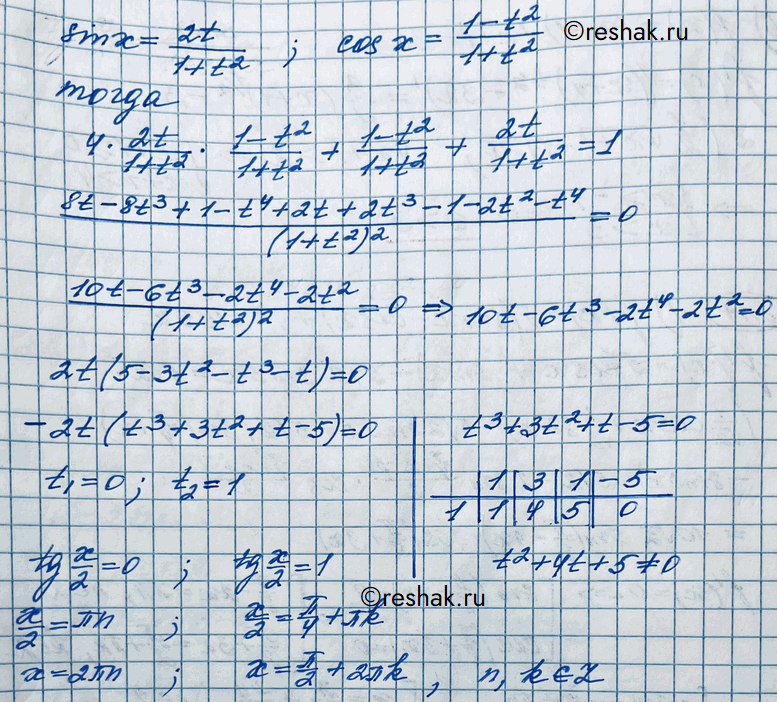 sinx = 2t/(1+t²) ; cos x = (1-t²)/(1+t²) ©reshak.ru
тогда
4 · 2t/(1+t²) · (1-t²)/(1+t²) + (1-t²)/(1+t²) + 2t/(1+t²) = 1
(8t - 8t³ + 1 - t⁴ + 2t + 2t³ - 1 - 2t² - t⁴)/(1+t²)² = 0
(10t - 6t³ - 2t⁴ - 2t²)/(1+t²)² = 0 ⇒ 10t - 6t³ - 2t⁴ - 2t² = 0
2t(5 - 3t² - t³ - t) = 0
-2t(t³ + 3t² + t - 5) = 0
t₁ = 0 ; t₂ = 1
t³ + 3t² + t - 5 = 0
| 1 | 3 | 1 | -5
1 | 1 | 4 | 5 | 0
t² + 4t + 5 ≠ 0
tg x/2 = 0 ; tg x/2 = 1
©reshak.ru
x/2 = πn ; x/2 = π/4 + πk
x = 2πn ; x = π/2 + 2πk , n, k ∈ Z